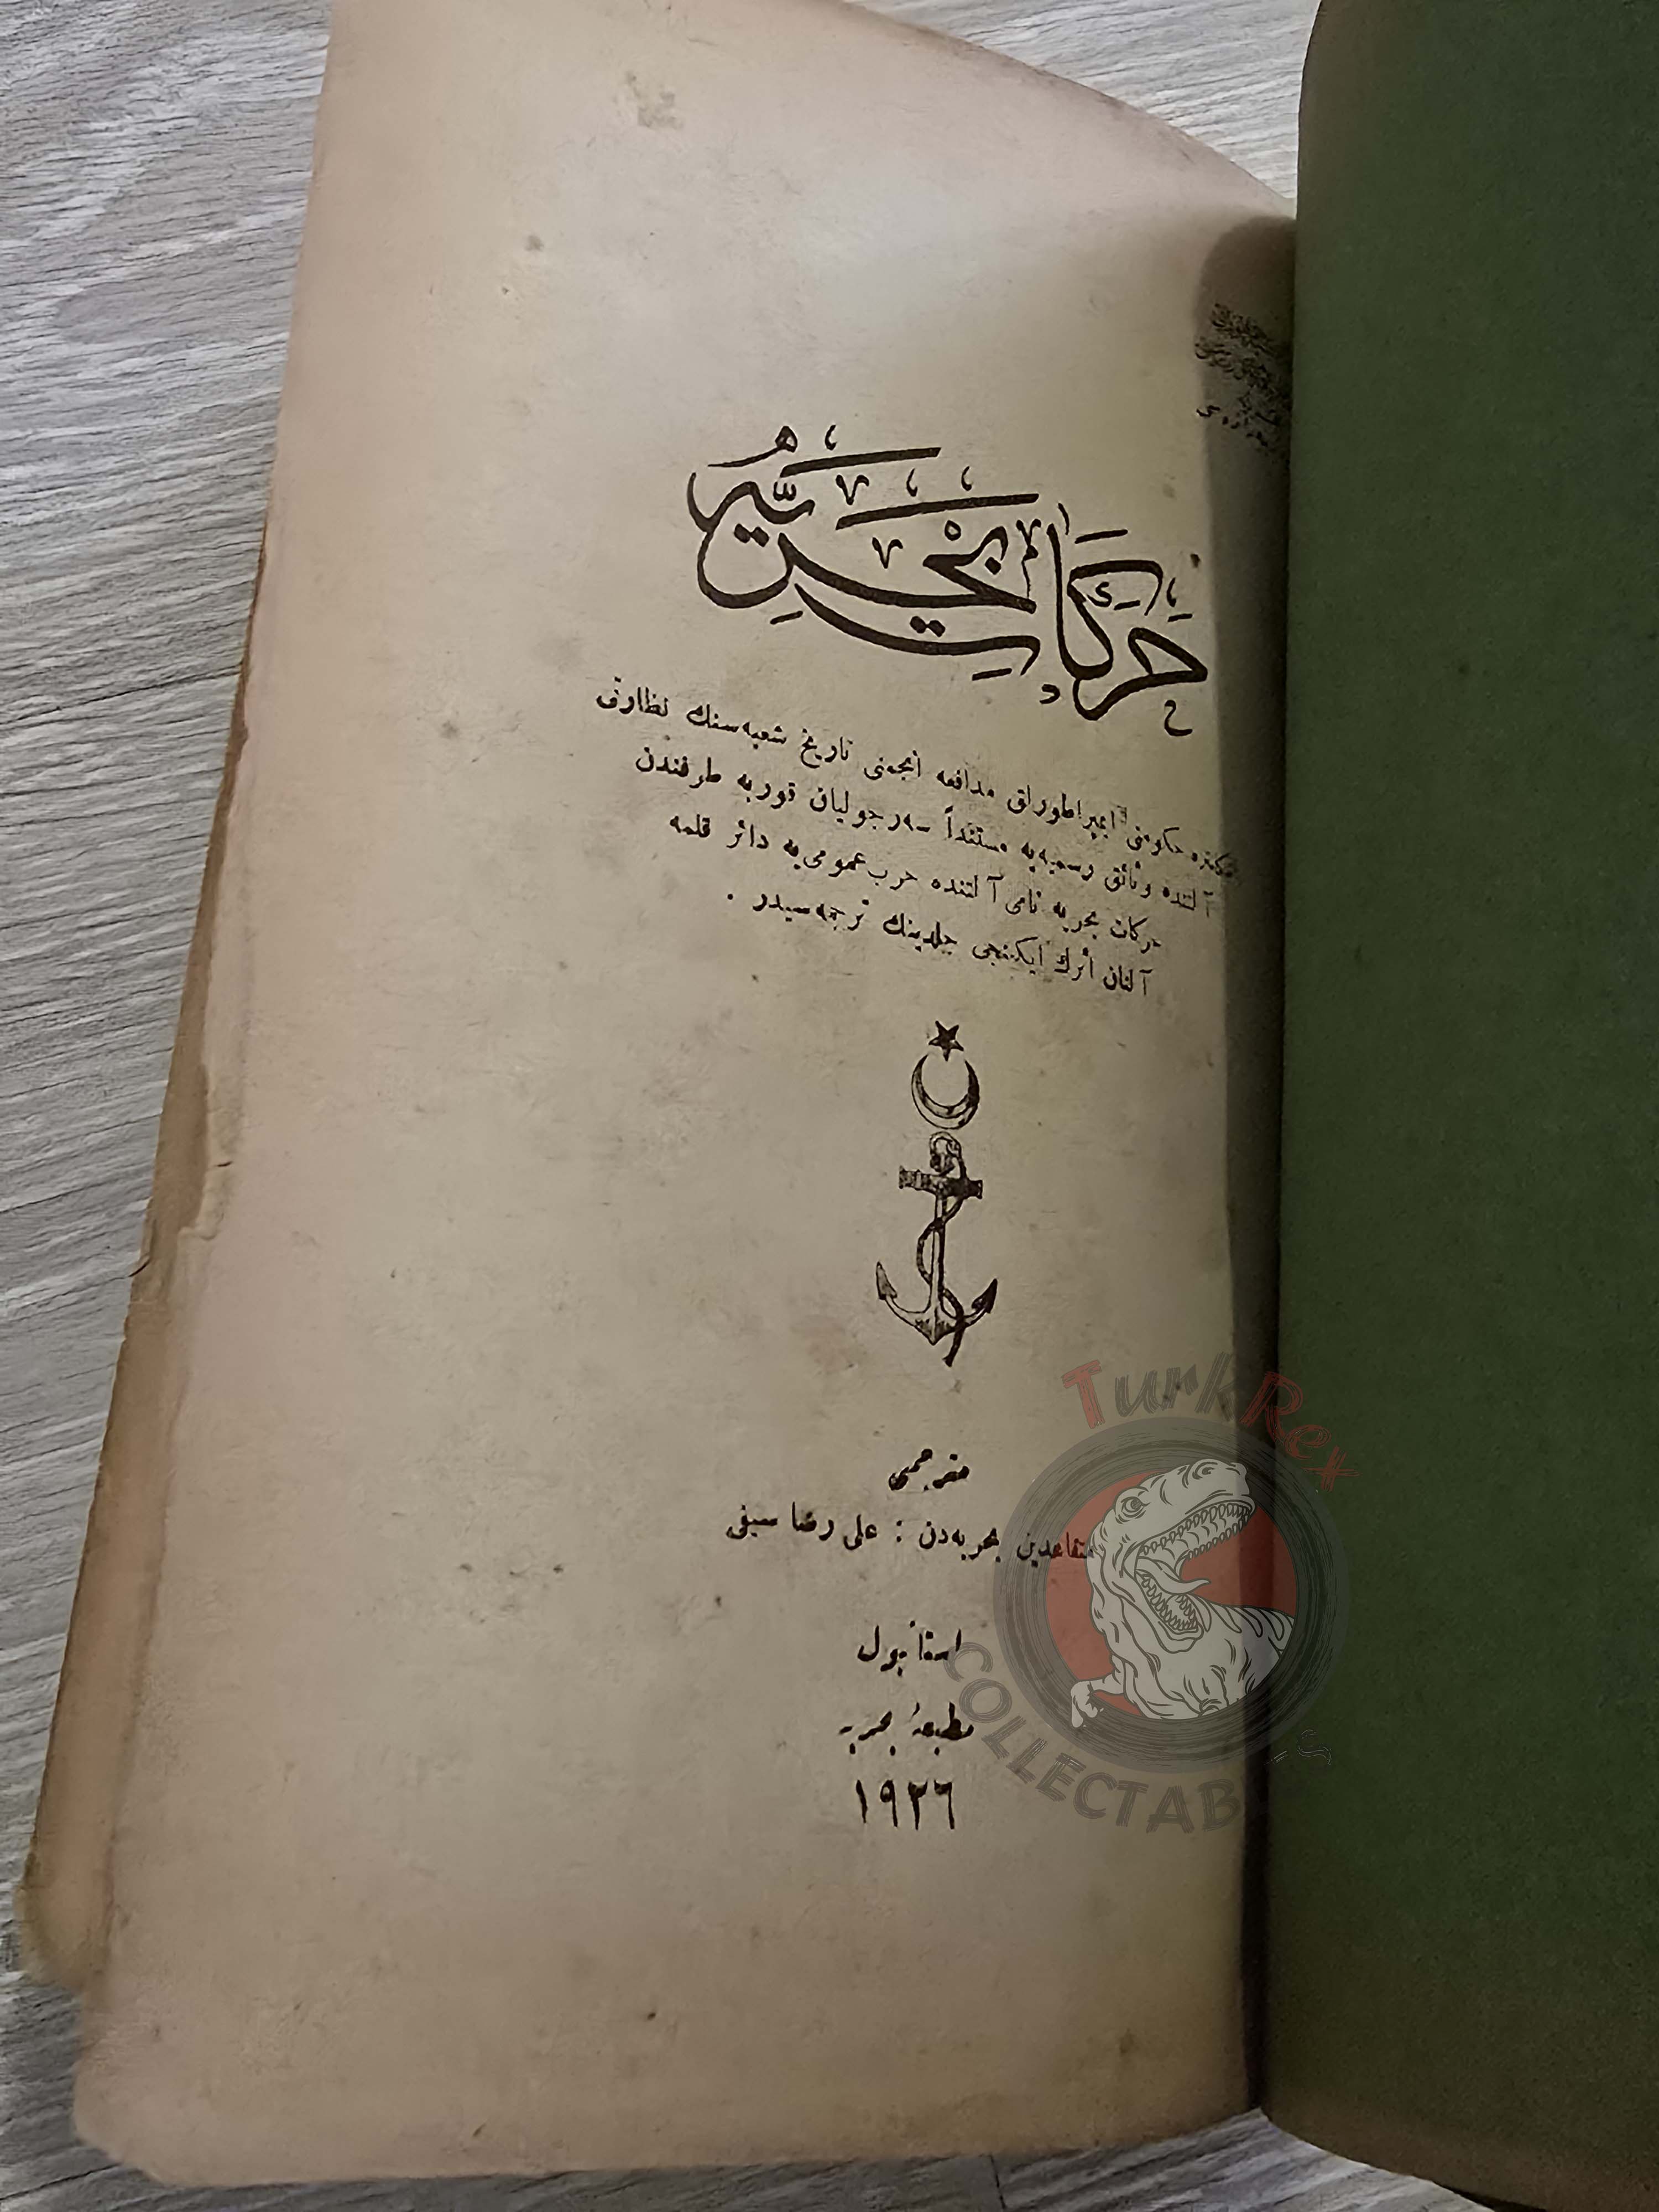 حركات بحريه
انكلتره حكومتى ايمپراطورلق مدافعه انجمنى تاريخ شعبه‌سنك نظارتى
آلتنده وثائق رسميه‌يه مستنداً سه‌ر جوليان قوربه طرفندن
حركات بحريه نامى آلتنده حرب عمومى‌يه دائر قلمه
آلنان اثرك ايكنجى جلدينك ترجمه‌سيدر .
مترجمى
متقاعدين بحريه‌دن : على رضا سيفى
استانبول
مطبعهٔ بحريه
١٩٢٦
TurkRex
COLLECTABLES